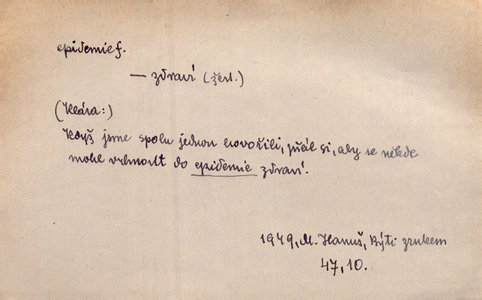 epidemie f.
— zdraví (žert.)
(Klára:)
Když jsme spolu jednou hovořili, přál si, aby se někde
mohl vrhnout do epidemie zdraví.
1949, M. Hanuš, Býti zrnkem
47, 10.